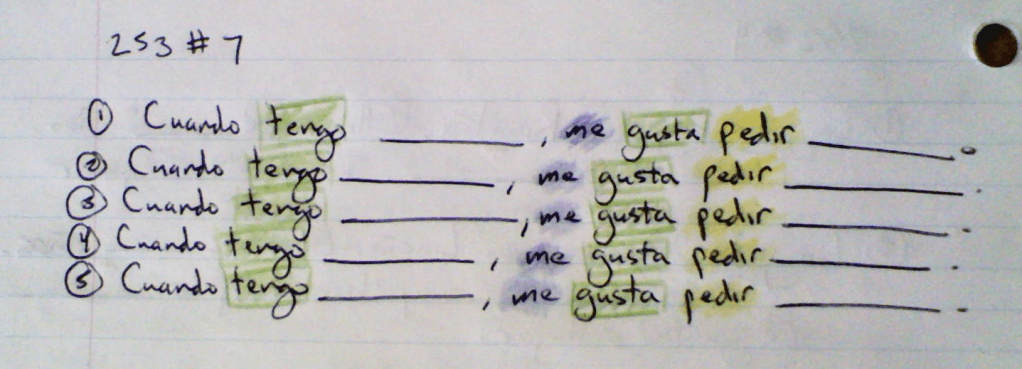 253 # 7
① Cuando tengo ________, me gusta pedir ________.
② Cuando tengo ________, me gusta pedir ________.
③ Cuando tengo ________, me gusta pedir ________.
④ Cuando tengo ________, me gusta pedir ________.
⑤ Cuando tengo ________, me gusta pedir ________.